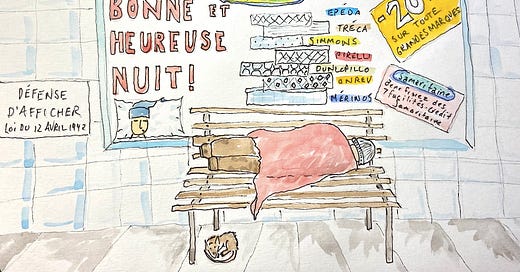 BONNE ET
HEUREUSE
NUIT!
EPÉDA
TRÉCA
SIMMONS
PIRELLI
DUNLOPILLO
MÉRINOS
-20
SUR TOUTE
GRANDES MARQUES
Samaritaine
des
facilités. Crédit
Samaritaine
DÉFENSE
D'AFFICHER
LOI DU 12 AVRIL 1942